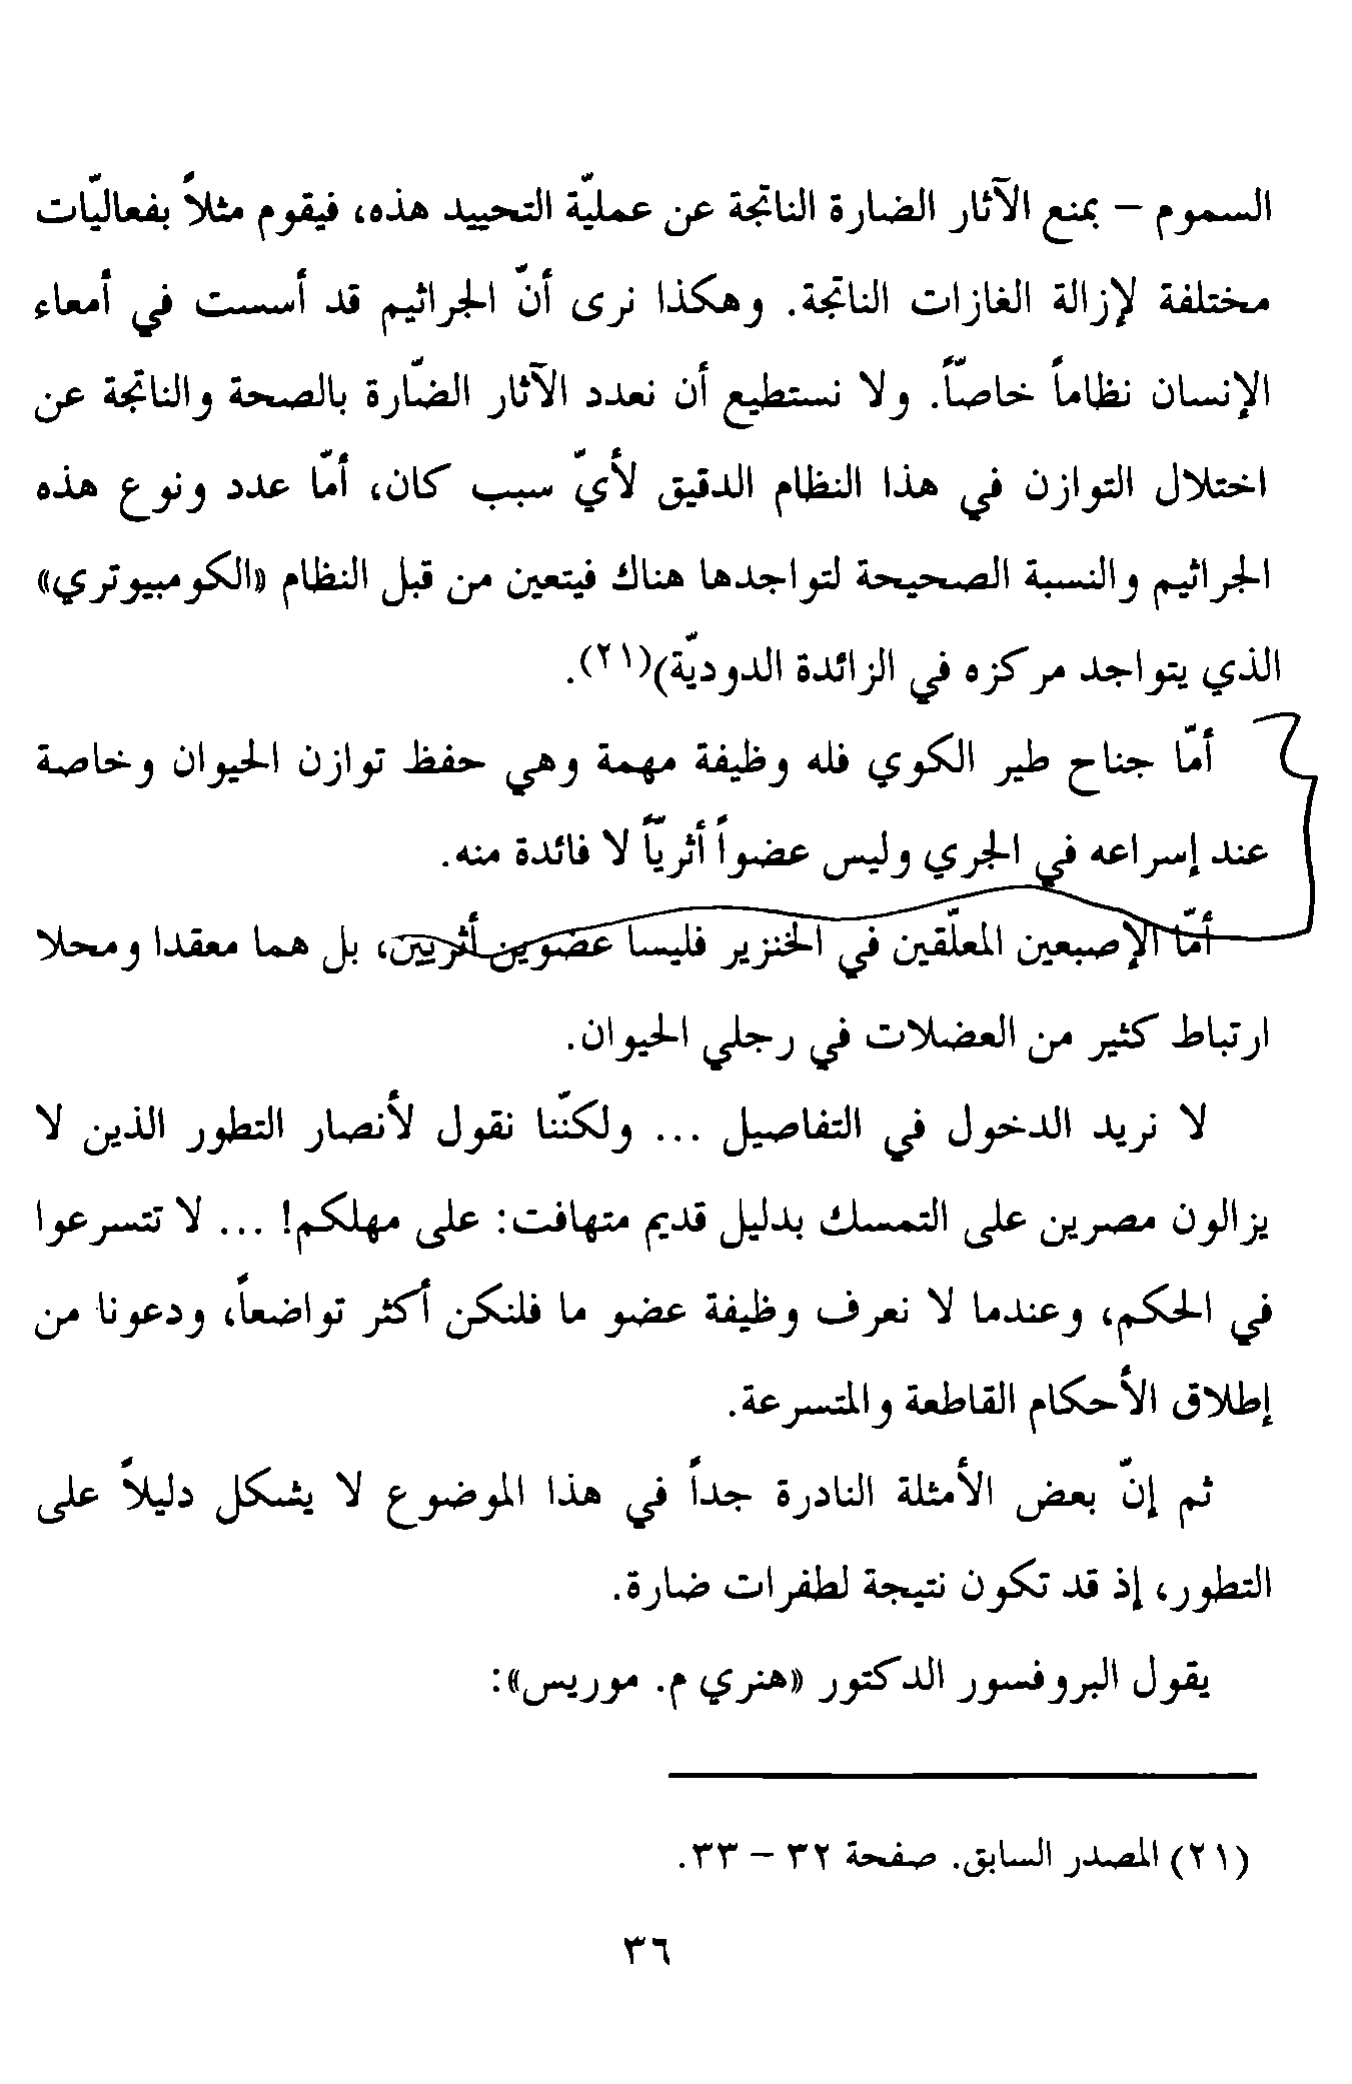 السموم – بمنع الآثار الضارة الناتجة عن عمليّة التحييد هذه، فيقوم مثلاً بفعاليّات
مختلفة لإزالة الغازات الناتجة. وهكذا نرى أنّ الجراثيم قد أسست في أمعاء
الإنسان نظاماً خاصّاً. ولا نستطيع أن نعدد الآثار الضّارة بالصحة والناتجة عن
اختلال التوازن في هذا النظام الدقيق لأيّ سبب كان، أمّا عدد ونوع هذه
الجراثيم والنسبة الصحيحة لتواجدها هناك فيتعين من قبل النظام «الكومبيوتري»
الذي يتواجد مركزه في الزائدة الدوديّة)(٢١).
أمّا جناح طير الكوي فله وظيفة مهمة وهي حفظ توازن الحيوان وخاصة
عند إسراعه في الجري وليس عضواً أثريّاً لا فائدة منه.
أمّا الإصبعين المعلّقين في الخنزير فليسا عضوين أثريين، بل هما معقدا ومحلا
ارتباط كثير من العضلات في رجلي الحيوان.
لا نريد الدخول في التفاصيل ... ولكنّنا نقول لأنصار التطور الذين لا
يزالون مصرين على التمسك بدليل قديم متهافت: على مهلكم! ... لا تتسرعوا
في الحكم، وعندما لا نعرف وظيفة عضو ما فلنكن أكثر تواضعاً، ودعونا من
إطلاق الأحكام القاطعة والمتسرعة.
ثم إنّ بعض الأمثلة النادرة جداً في هذا الموضوع لا يشكل دليلاً على
التطور، إذ قد تكون نتيجة لطفرات ضارة.
يقول البروفسور الدكتور «هنري م. موريس»:
(٢١) المصدر السابق. صفحة ٣٢ – ٣٣.
٣٦